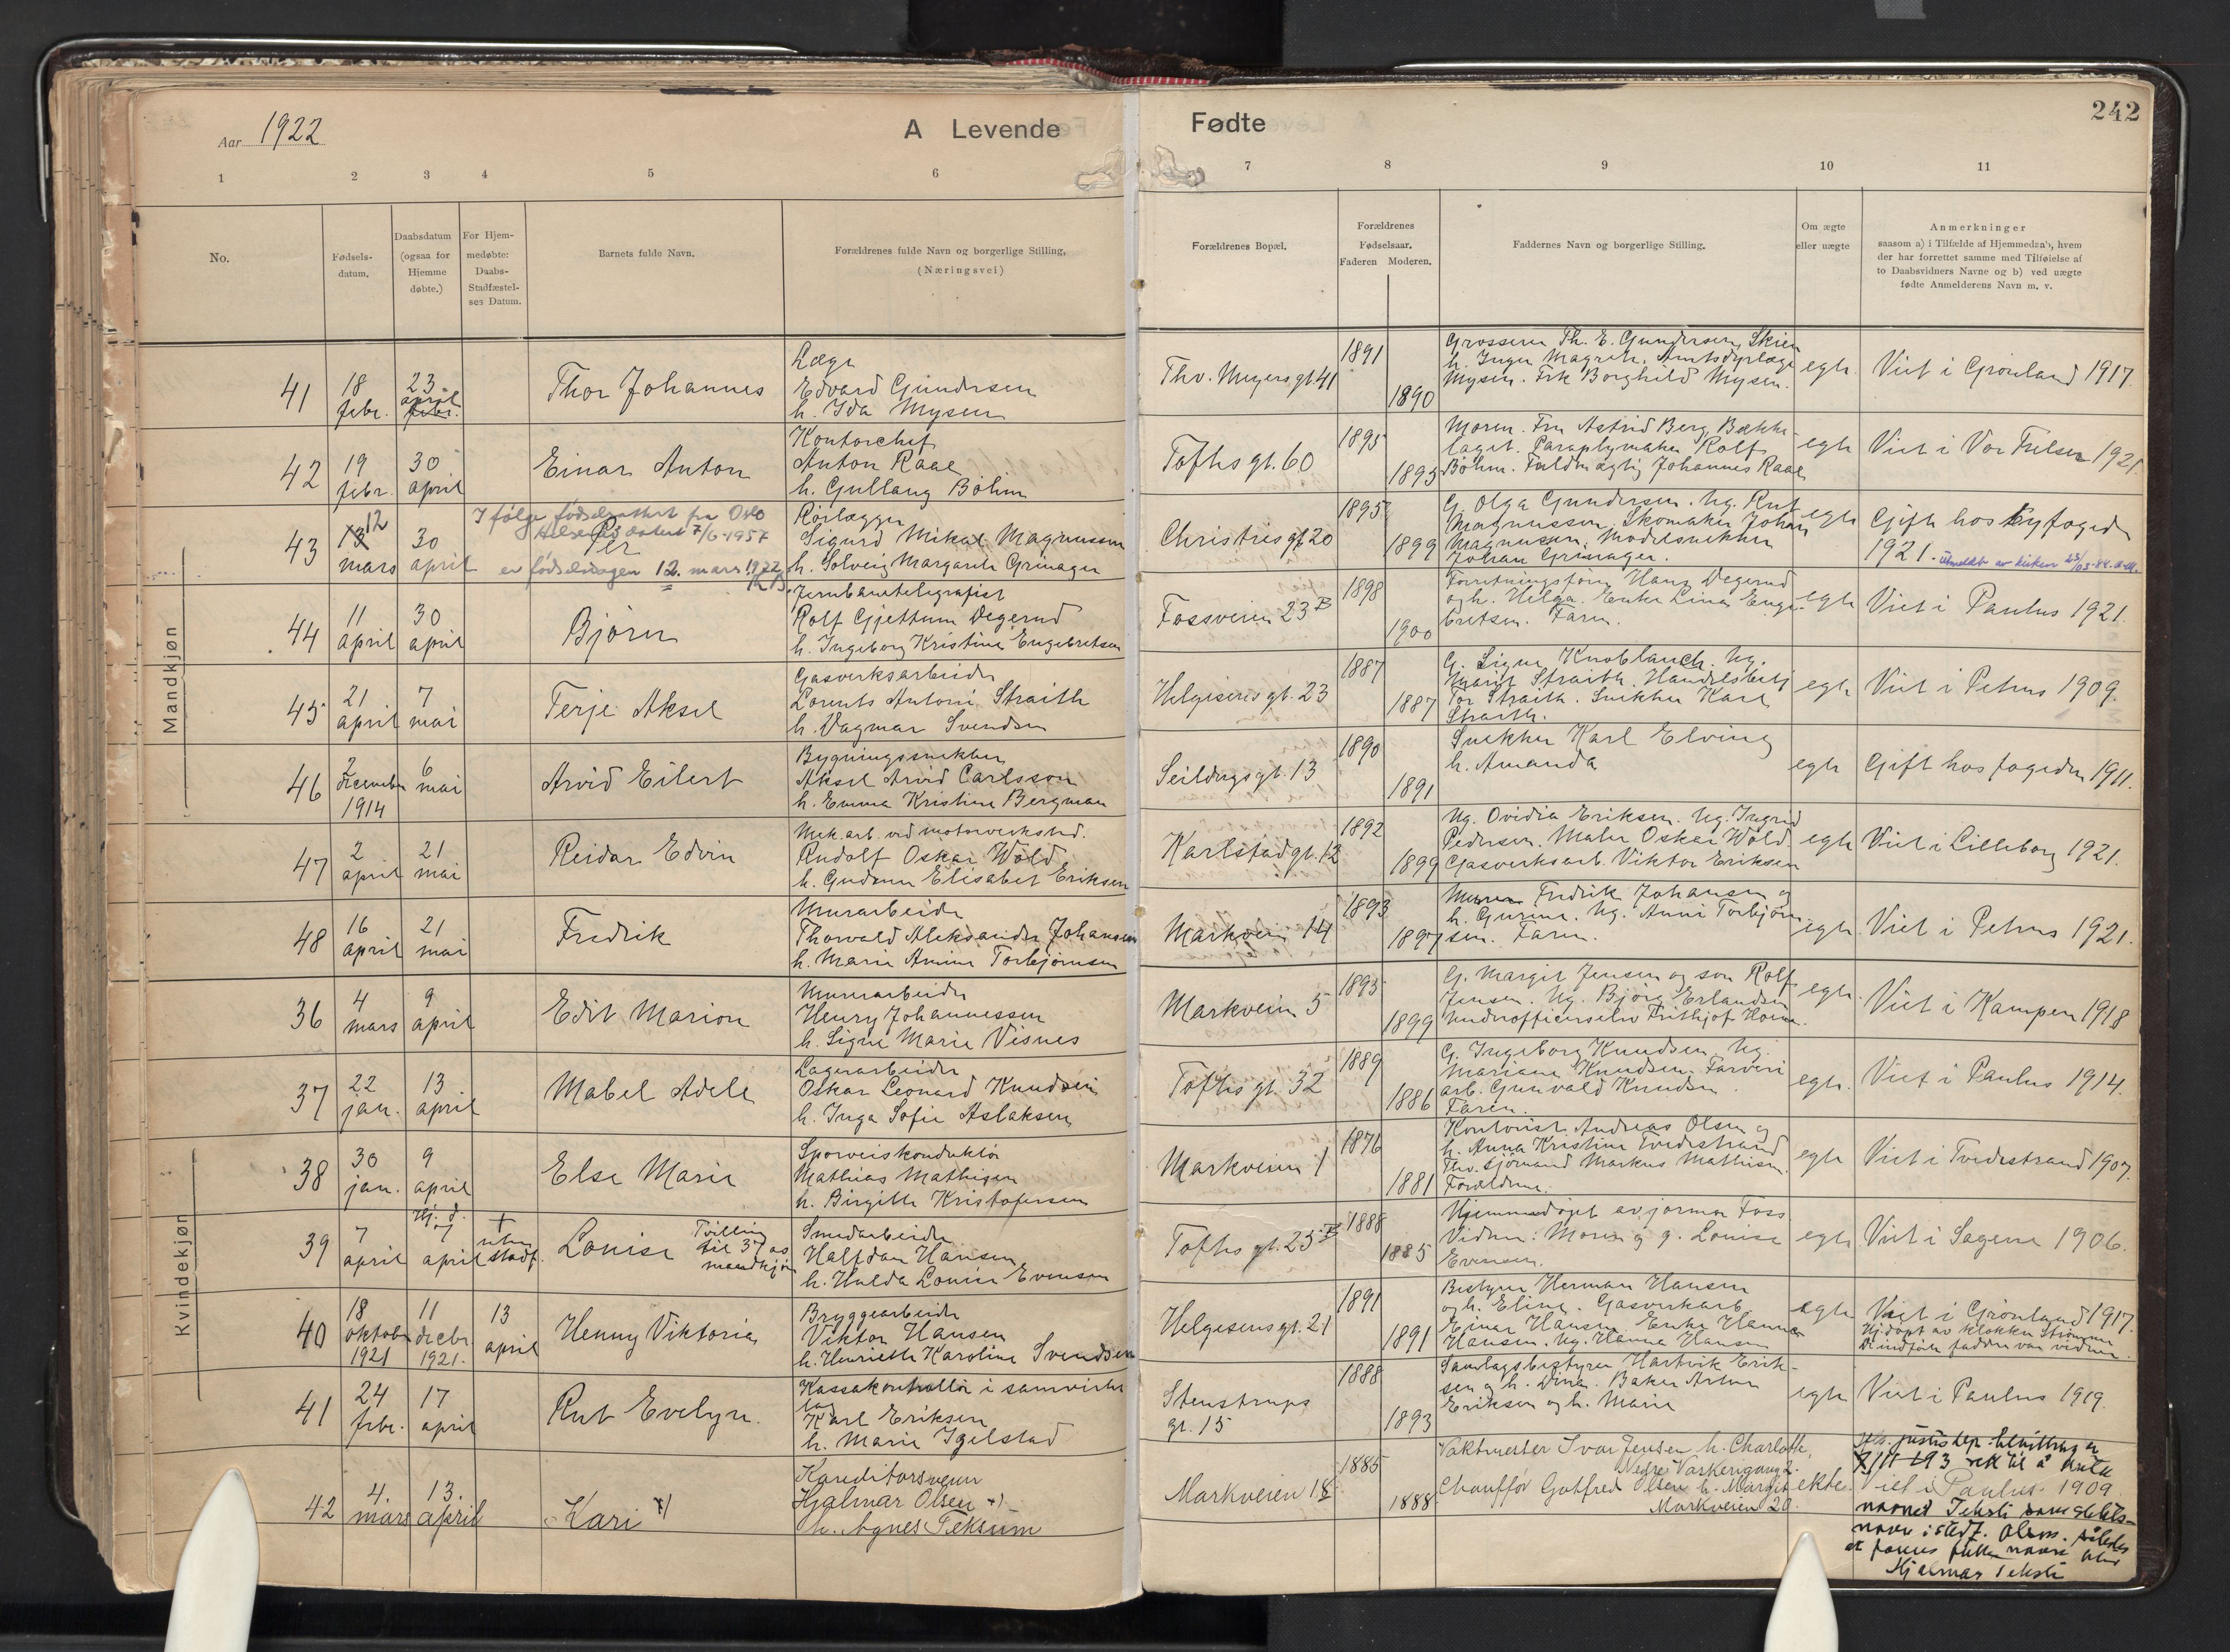 Aar 1922
A Levende
Fødte
242
1 2 3 4 5 6
7 8 9 10 11
No.
Fødsels-
datum.
Daabsdatum
(ogsaa for
Hjemme
døbte.)
For Hjem-
medøbte:
Daabs-
Stadfæstel-
ses Datum.
Barnets fulde Navn.
Forældrenes fulde Navn og borgerlige Stilling,
(Næringsvei)
Forældrenes Bopæl.
Forældrenes
Fødselsaar.
Faderen Moderen.
Faddernes Navn og borgerlige Stilling.
Om ægte
eller uægte
Anmerkninger
saasom a) i Tilfælde af Hjemmedaab, hvem
der har forrettet samme med Tilføielse af
to Daabsvidners Navne og b) ved uægte
fødte Anmelderens Navn m. v.
Mandkjøn
41
18
febr.
23
april
febr.
Thor Johannes
Læge
Edvard Gundersen
h. Ida Mysen
Thv. Meyers gt 41
1891
1890
Grosserer Th. E. Gundersen, Skien
h. Inger Magreth. Amtsdyrlæge
Mysen. Frk Borghild Mysen.
egte
Viet i Grønland 1917.
42
19
febr.
30
april
Einar Anton
Kontorchef
Anton Raae
h. Gullaug Böhm
Toftes gt. 60
1895
1895
Moren. Fru Astrid Berg, Bække-
laget. Paraplymaker Rolf
Böhm. Fuldmægtig Johannes Raae
egte
Viet i Vor Frelser 1921.
43
13 12
mars
30
april
I følge fødselsattest fra Oslo
Helseråd datert 7/6-1957
Per
er fødselsdagen 12. mars 1922
Rørlægger
Sigurd Mikal Magnussen
h. Solveig Margarete Grinager
Christies gt 20
1895
1899
G. Olga Gundersen. Ug. Rut
Magnussen. Skomaker Johan
Magnussen. Modelsnekker
Johan Grinager.
egte
Gift hos Byfogden
1921. utmeldt av kirken
44
11
april
30
april
Bjørn
Jernbanetelegrafist
Rolf Gjettum Degerud
h. Ingeborg Kristine Engebretsen
Fossveien 23 B
1898
1900
Forretningsfører Hans Degerud
og h. Helga. Enke Lina Enge-
bretsen. Faren.
egte
Viet i Paulus 1921.
45
21
april
7
mai
Terje Aksel
Gasverksarbeider
Lorents Antoni Straith
h. Dagmar Svendsen
Helgesens gt. 23
1887
1887
G. Signe Knoblauch. Ug.
Marit Straith. Handelsbetj
Tor Straith. Snekker Karl
Straith.
egte
Viet i Petrus 1909.
46
2
december
1914
6
mai
Arvid Eilert
Bygningssnekker
Aksel Arvid Carlsson
h. Emma Kristine Bergman
Seildugsgt. 13
1890
1891
Snekker Karl Elving
h. Amanda
egte
Gift hos fogden 1911.
47
2
april
21
mai
Reidar Edvin
Mek. arb. ved motorverksted.
Rudolf Oskar Wold
h. Gudrun Elisabet Eriksen
Karlstadgt. 12
1892
1899
Ug. Ovidia Eriksen. Ug. Ingrid
Pedersen. Maler Oskar Wold.
Gasverksarb. Viktor Eriksen
egte
Viet i Lilleborg 1921.
48
16
april
21
mai
Fredrik
Murarbeider
Thorvald Aleksander Johansen
h. Marie Amine Torbjørnsen
Markveien 14
1893
1897
Murer Fredrik Johansen og
h. Gurine. Ug. Anni Torbjørn-
sen. Faren.
egte
Viet i Petrus 1921.
Kvindekjøn
36
4
mars
9
april
Edit Marion
Murerarbeider
Henry Johannessen
h. Signe Marie Visnes
Markveien 5
1895
1899
G. Margit Jensen og søn Rolf
Jensen. Ug. Bjørg Erlandsen
Underofficerselev Frithjof
egte
Viet i Kampen 1918
37
22
jan.
13
april
Mabel Adele
Lagerarbeider
Oskar Leonard Knudsen
h. Inga Sofie Aslaksen
Toftes gt. 32
1889
1886
G. Ingeborg Knudsen. Ug.
Mariane Knudsen. Farveri
arb. Gunvald Knudsen
Faren.
egte.
Viet i Paulus 1914.
38
30
jan.
9
april
Else Marie
Sporveiskonduktør
Mathias Mathisen
h. Birgitte Kristofersen
Markveien 1
1876
1881
Kontorist Andreas Olsen og
h. Anna Kristine Tvedestrand
Fhv. sjømand Markus Mathisen.
Forældrene.
egte
Viet i Tvedestrand 1907.
39
7
april
Hj. d.
7
april
†
uten
stadf.
Louise
Tvilling
til 37 as
mandkjøn
Smedarbeider
Halfdan Hansen
h. Hulda Louise Evensen
Toftes gt. 25 B
1888
1885
Hjemmedøpt av jormor Foss
Vidner: Moren og g. Louise
Evensen.
egte
Viet i Sagene 1906.
40
18
oktober
1921
11
decbr.
1921.
13
april
Henny Viktoria
Bryggearbeider
Viktor Hansen
h. Henriette Karoline Svendsen
Helgesens gt. 21
1891
1891
Bestyrer Herman Hansen
og h. Eline. Gasverkarb.
Einar Hansen. Enke Hanna
Hansen. Ug. Hanna Hansen
egte
Viet i Grønland 1917.
Hj. døpt av klokker Strømme
De indførte faddere var vidner.
41
24
febr.
17
april
Rut Evelyn.
Kassakontrollør i samvirke
lag
Karl Eriksen
h. Marie Igelstad
Stenstrups
gt. 15
1888
1893
Samlagsbestyrer Hartvik Erik-
sen og h. Dina. Baker Artur
Eriksen og h. Marie
egte
Viet i Paulus 1919.
42
4.
mars
13.
april
Kari x)
Konditorsvenn
Hjalmar Olsen x)
h. Agnes Teksum
Markveien 18
1885
1888
Vaktmester Ivar Jensen h. Charlotte,
Nedre Vaskerigang 2.
Chauffør Gotfred Olsen h. Margit
Markveien 20.
ekte.
justisdep. bevilling
til å bruke
Viet i Paulus 1909
navnet som slekts-
navn i stedf. Olsen. således
at farens fulle navn blir
Hjalmar